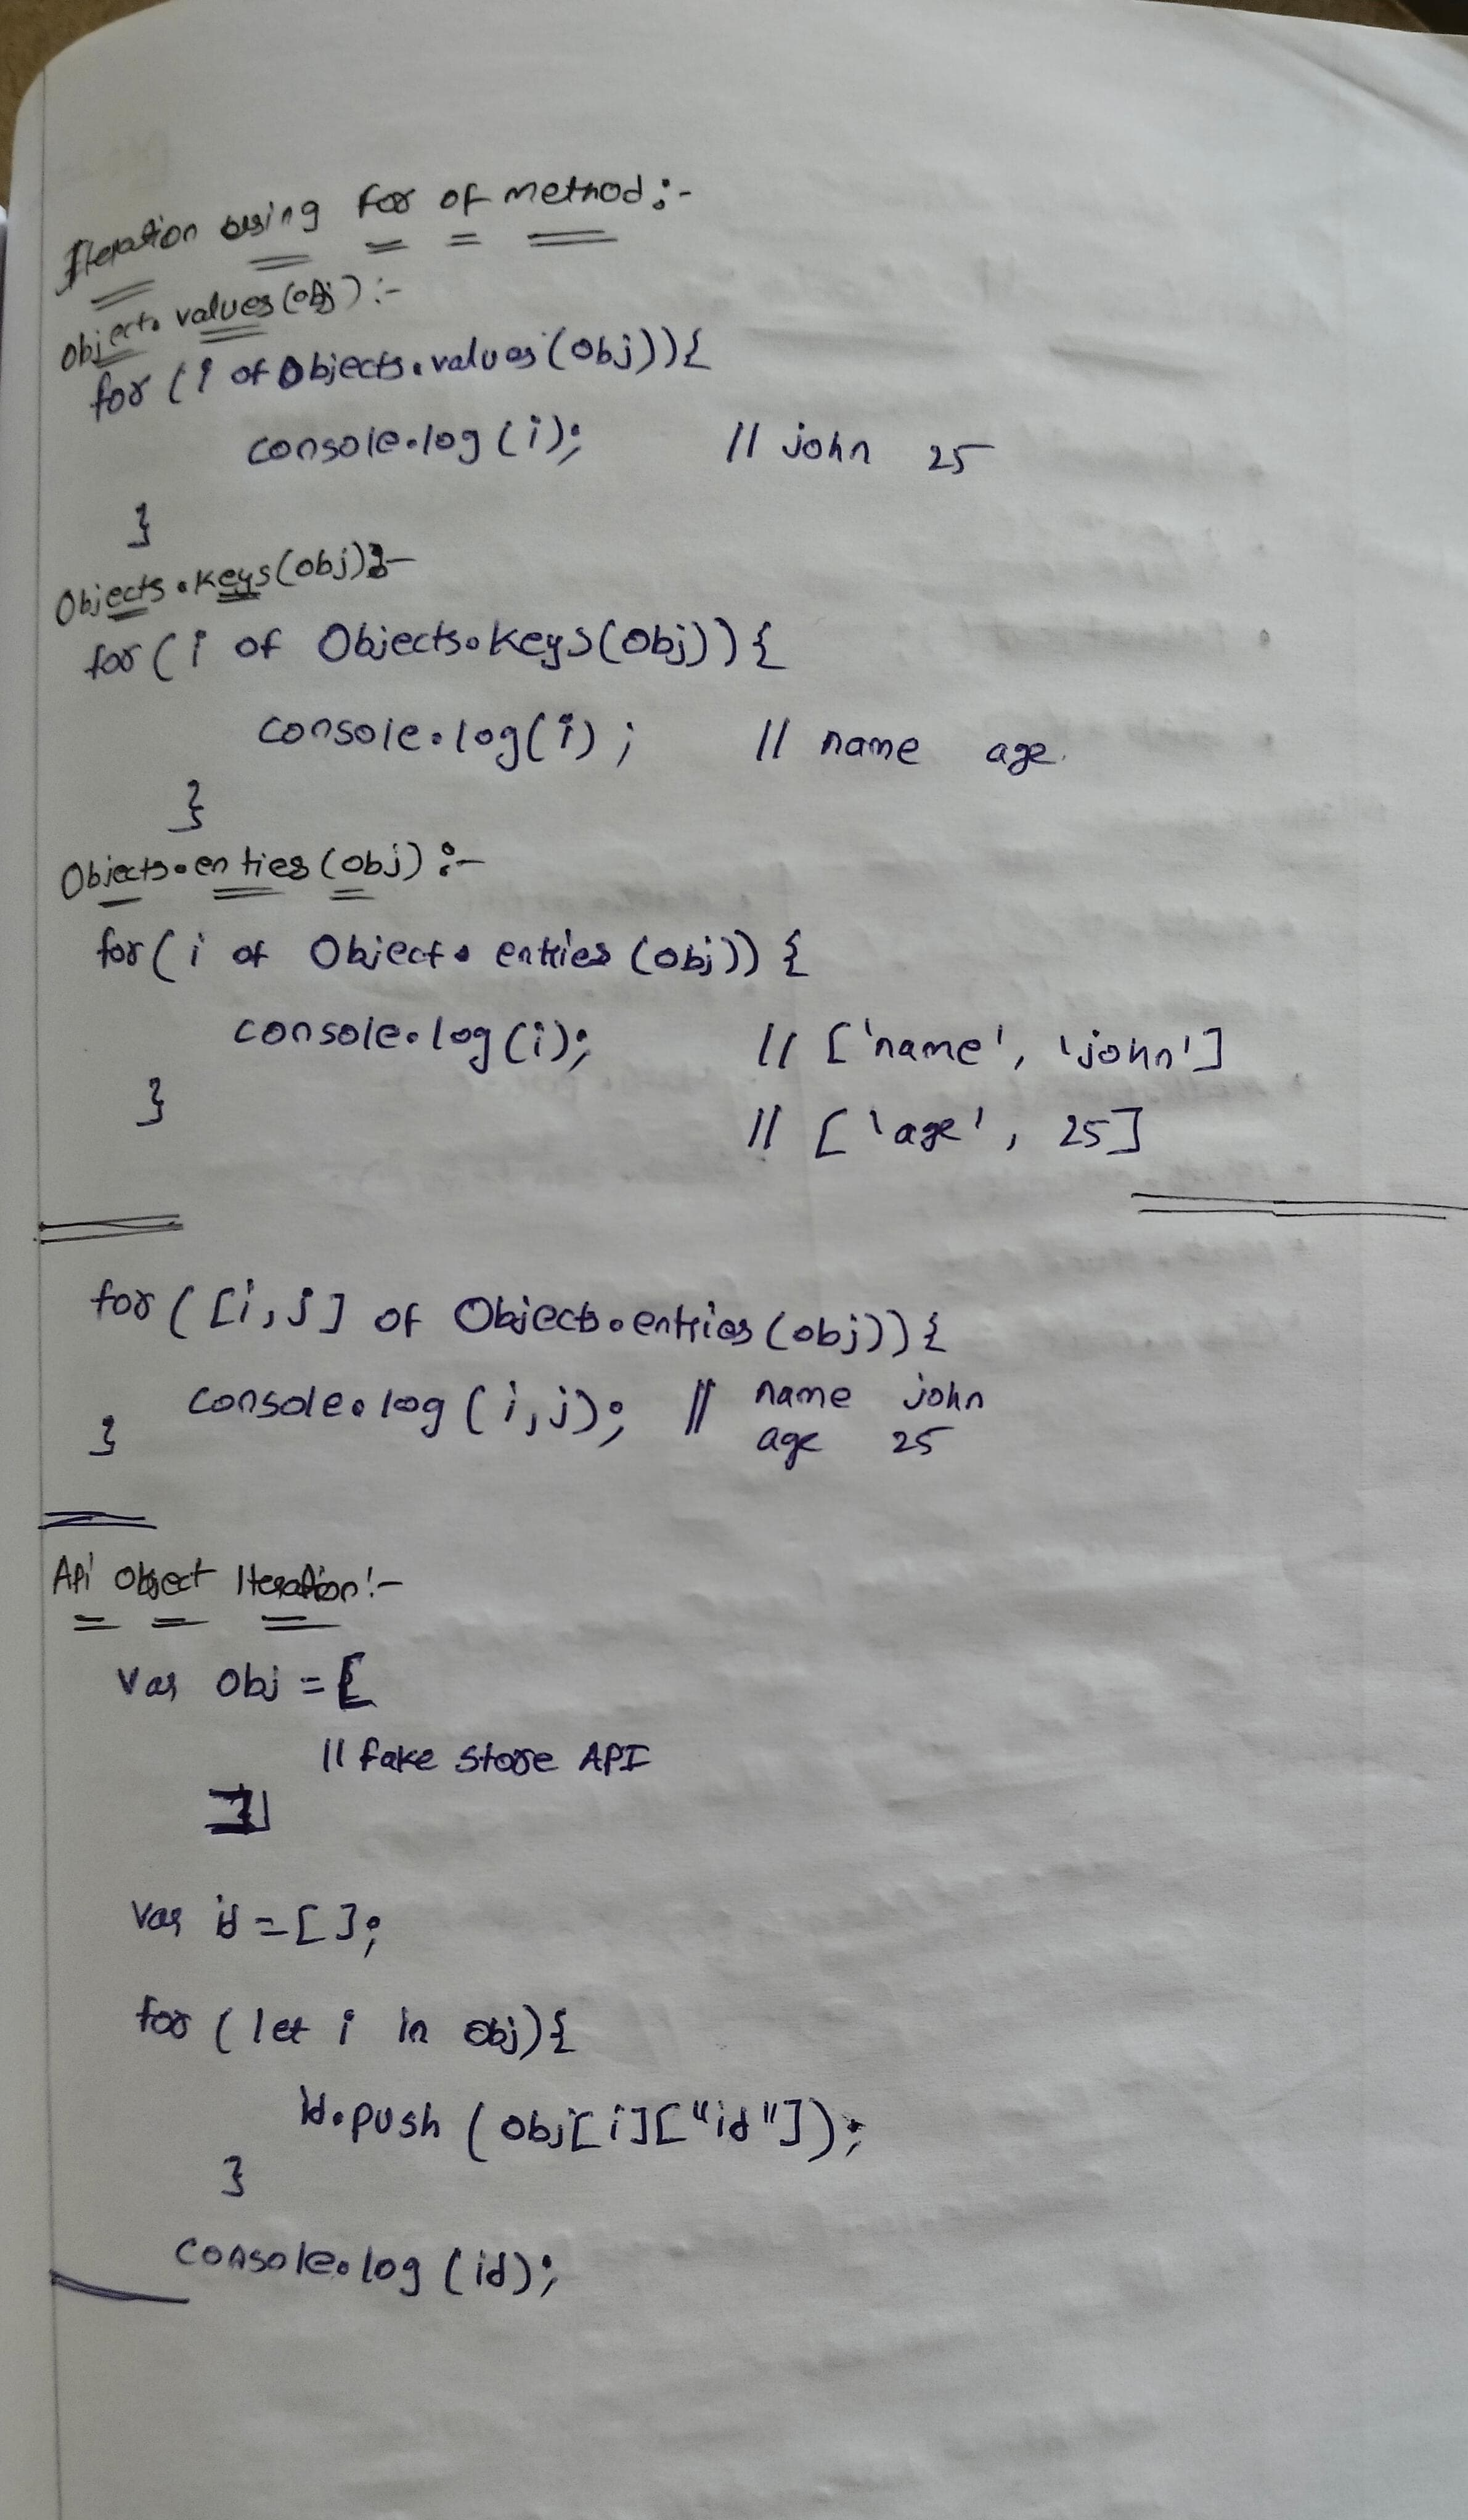 Iteration using for of method:-
Object.values(obj):-
for (i of Objects.values(obj)){
console.log(i); // john 25
}
Objects.keys(obj):-
for (i of Objects.keys(obj)){
console.log(i); // name age.
}
Objects.enties(obj):-
for(i of Object.entries(obj)){
console.log(i); // ['name', 'john']
} // ['age', 25]
for ([i,j] of Objects.entries(obj)){
console.log(i,j); // name john
} age 25
Api Object Iteration:-
var obj = [
// fake store API
]
var id = [];
for (let i in obj){
id.push(obj[i]["id"]);
}
console.log(id);